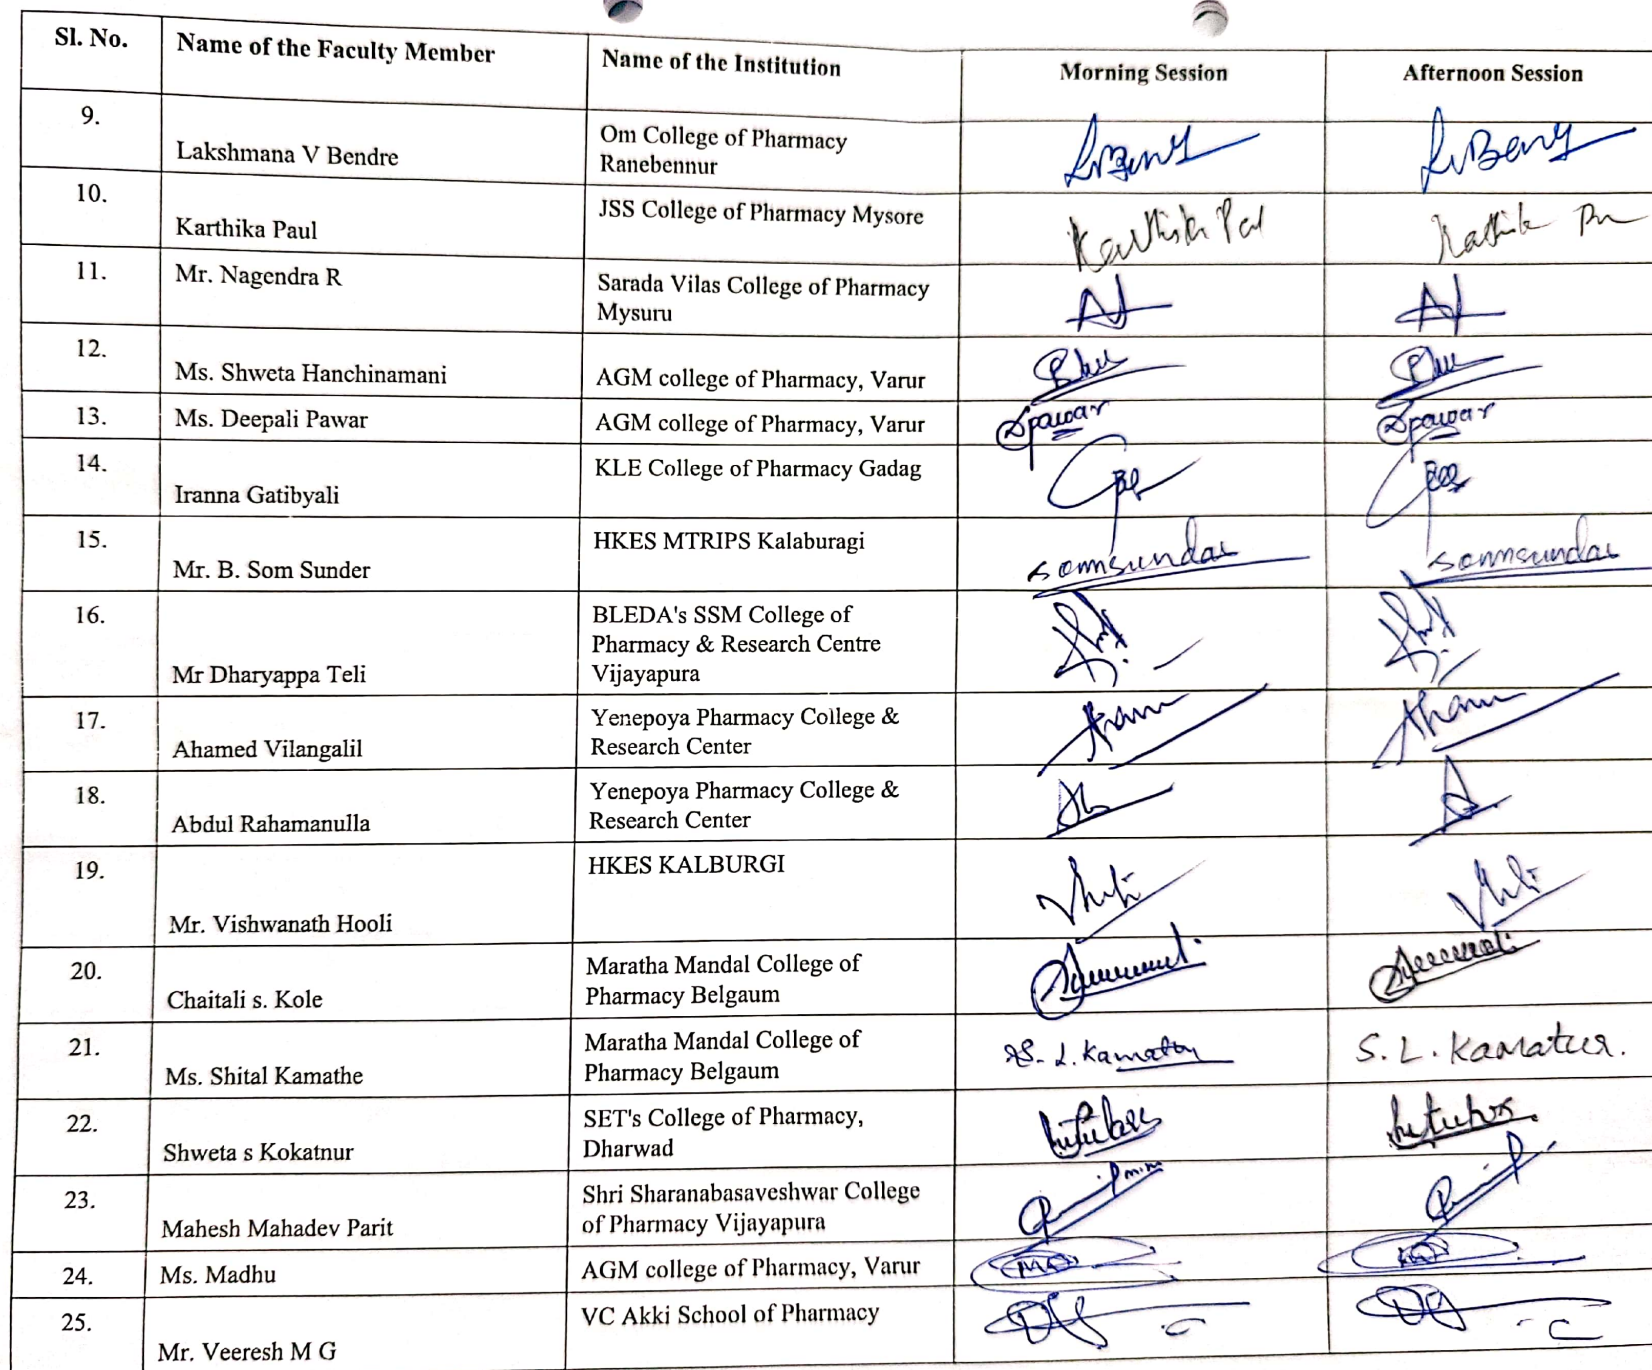 Sl. No. Name of the Faculty Member Name of the Institution Morning Session Afternoon Session
9. Lakshmana V Bendre Om College of Pharmacy
Ranebennur
10. Karthika Paul JSS College of Pharmacy Mysore
11. Mr. Nagendra R Sarada Vilas College of Pharmacy
Mysuru
12. Ms. Shweta Hanchinamani AGM college of Pharmacy, Varur
13. Ms. Deepali Pawar AGM college of Pharmacy, Varur Dpawar Dpawar
14. Iranna Gatibyali KLE College of Pharmacy Gadag
15. Mr. B. Som Sunder HKES MTRIPS Kalaburagi
16. Mr Dharyappa Teli BLEDA's SSM College of
Pharmacy & Research Centre
Vijayapura
17. Ahamed Vilangalil Yenepoya Pharmacy College &
Research Center
18. Abdul Rahamanulla Yenepoya Pharmacy College &
Research Center
19. Mr. Vishwanath Hooli HKES KALBURGI
20. Chaitali s. Kole Maratha Mandal College of
Pharmacy Belgaum
21. Ms. Shital Kamathe Maratha Mandal College of
Pharmacy Belgaum
22. Shweta s Kokatnur SET's College of Pharmacy,
Dharwad
23. Mahesh Mahadev Parit Shri Sharanabasaveshwar College
of Pharmacy Vijayapura
24. Ms. Madhu AGM college of Pharmacy, Varur
25. Mr. Veeresh M G VC Akki School of Pharmacy